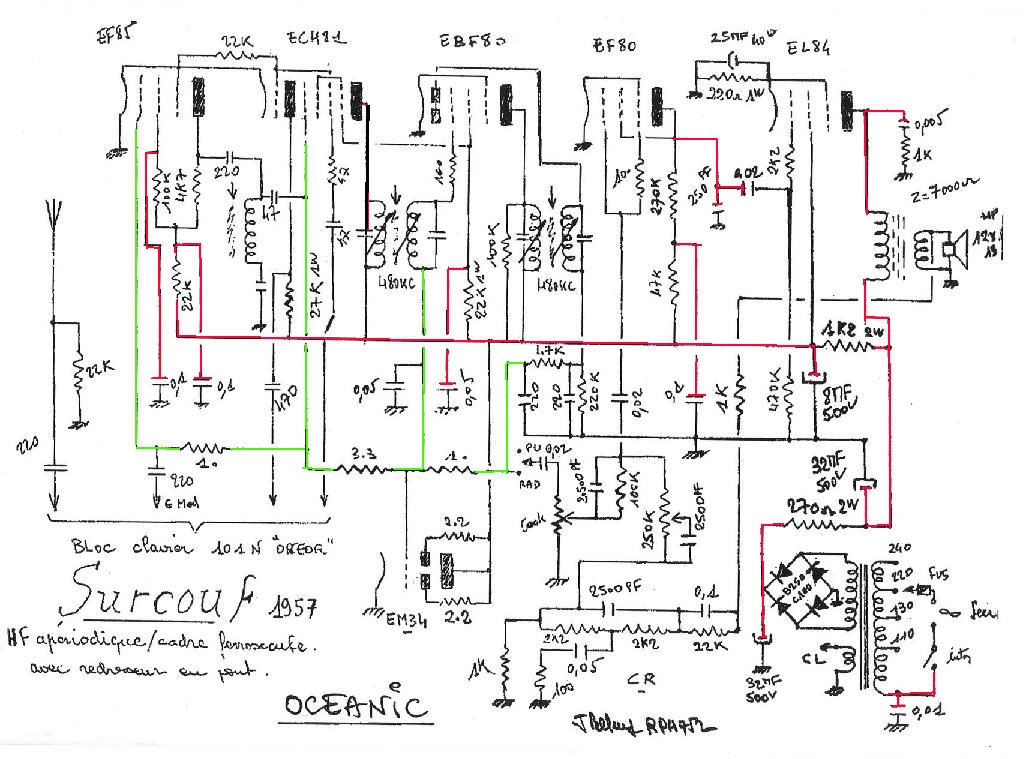 EF85
ECH81
EBF80
EF80
EL84
22K
25MF
220Ω 1W
0,005
1K
Z=7000Ω
HP
100K
4K7
220
47
2K2
270K
0,02
22K
27K 1W
480KC
22K 1W
100K
480KC
47K
1K2 2W
22K
0,1
0,1
470
0,05
0,05
220
220
220K
0,02
0,1
1K
470K
8MF
500V
220
1.
220
3.3
1.
PU 0,02
RAD
500K
100K
250K
250PF
32MF
500V
270Ω 2W
G Mod
Bloc clavier 101N "OREOR"
2.2
EM34
2.2
Surcouf 1957
HF apériodique/cadre ferroxcube.
avec redresseur en pont.
2500PF
0,1
2K2
2K2
22K
1K
100
0,05
CR
32MF
500V
B250
C100
CL
240
220
130
110
Fus
Sect
inter
0,01
OCEANIC